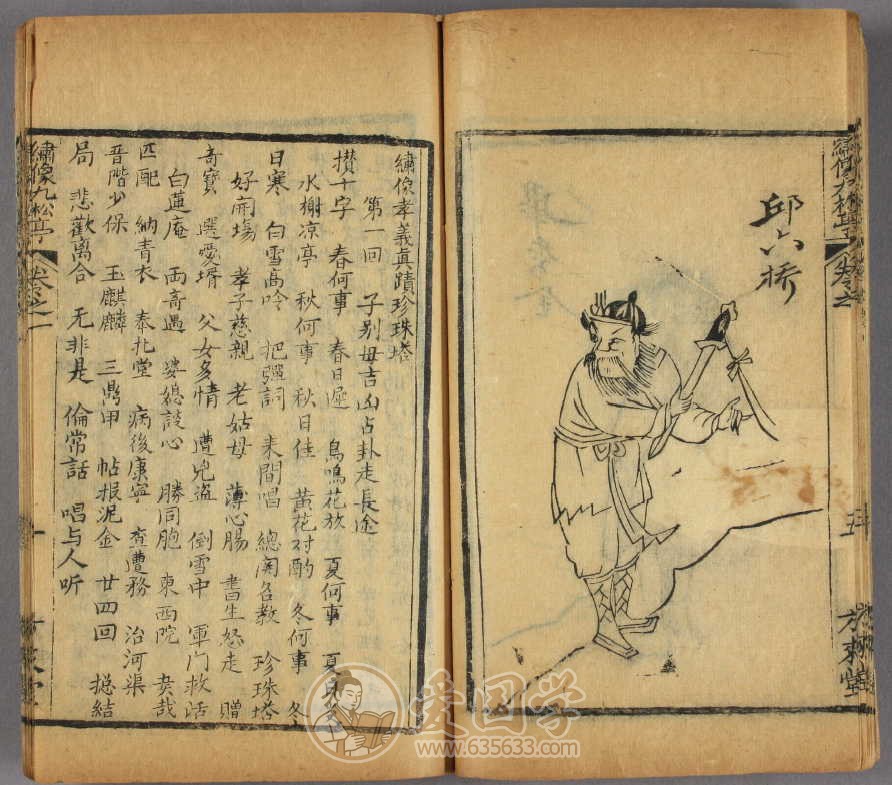 邱六桥
五
方来堂
繡像九松亭
卷之一
繡像孝義真蹟珍珠塔
第一回　子別毋吉凶占卦走長途
攅十字　春何事　春日遲　鳥鳴花放　夏何事　夏
水榭凉亭　秋何事　秋日佳　黄花对酌　冬何事　冬
日寒　白雪高吟　把彈詞　来間唱　總関名教　珍珠塔
好開塲　孝子慈親　老姑母　薄心腸　書生怒走　贈
奇寳　選愛壻　父女多情　遭兇盗　倒雪中　軍门救活
白蓮庵　両奇遇　婆媳談心　勝同胞　東西院　奂哉
匹配　納青衣　泰北堂　病後康寧　查遭務　治河渠
晋階少保　玉麒麟　三鼎甲　帖报泥金　廿四回　捴結
局　悲歡离合　无非是　倫常話　唱与人听
繡像九松亭
卷之一
一
爱国学
www.635633.com